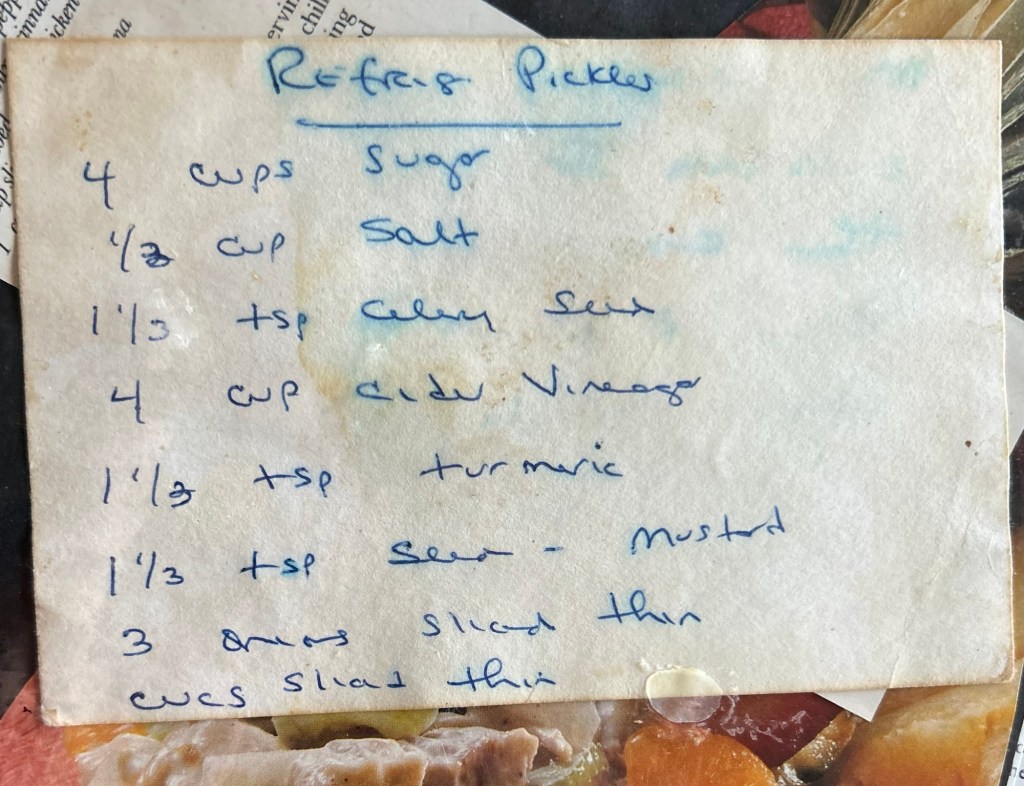 Refrig. Pickles
4 cups Sugar
cup Salt
1 1/3 tsp Celery Seed
4 cup Cider Vinegar
1 1/3 tsp turmeric
1 1/3 tsp Seed - Mustard
3 onions sliced thin
cucs sliced thin